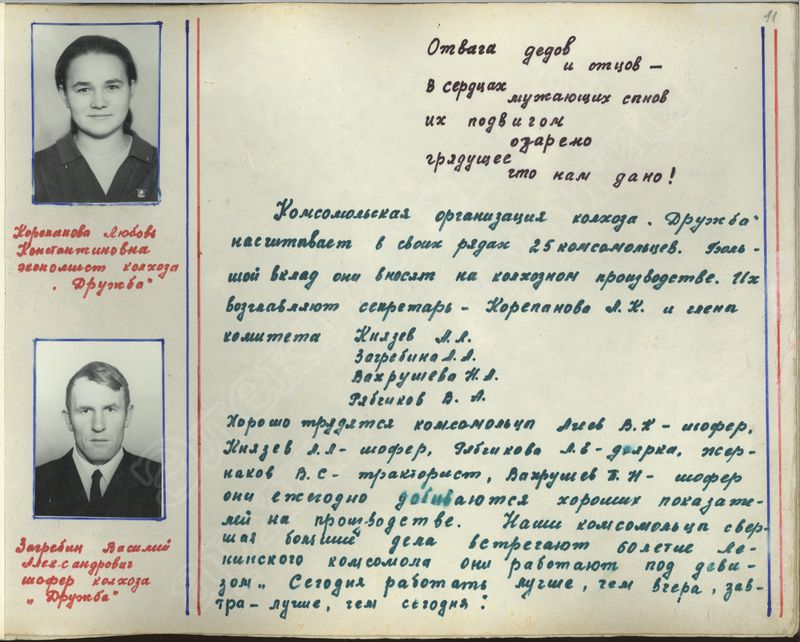 11
Отвага дедов
и отцов —
в сердцах
мужающих сынов
их подвигом
озарено
грядущее
что нам дано!
Корепанова Любовь
Константиновна
экономист колхоза
„Дружба"
Комсомольская организация колхоза „Дружба"
насчитывает в своих рядах 25 комсомольцев. Боль-
шой вклад они вносят на колхозном производстве. Их
возглавляют секретарь - Корепанова Л. К. и члены
комитета Князев А. Л.
Загребина Л. А.
Вахрушева Н. А.
Рябчиков В. А.
Хорошо трудятся комсомольцы Агеев В. К - шофер,
Князев А. Л - шофер, Рябчикова Л. Е - доярка, Жер-
наков В. С - тракторист, Вахрушев П. Н - шофер
они ежегодно добиваются хороших показате-
лей на производстве. Наши комсомольцы свер-
шая большие дела встречают 60 летие Ле-
нинского комсомола они работают под деви-
зом „Сегодня работать лучше, чем вчера, зав-
тра - лучше, чем сегодня!
Загребин Василий
Александрович
шофер колхоза
„Дружба"